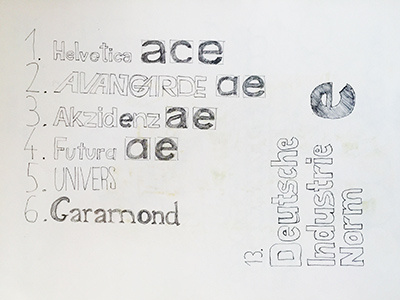 1. Helvetica ace
2. AVANGARDE ae
3. Akzidenz ae
4. Futura ae
5. UNIVERS
6. Garamond
13. Deutsche
Industrie
Norm
e